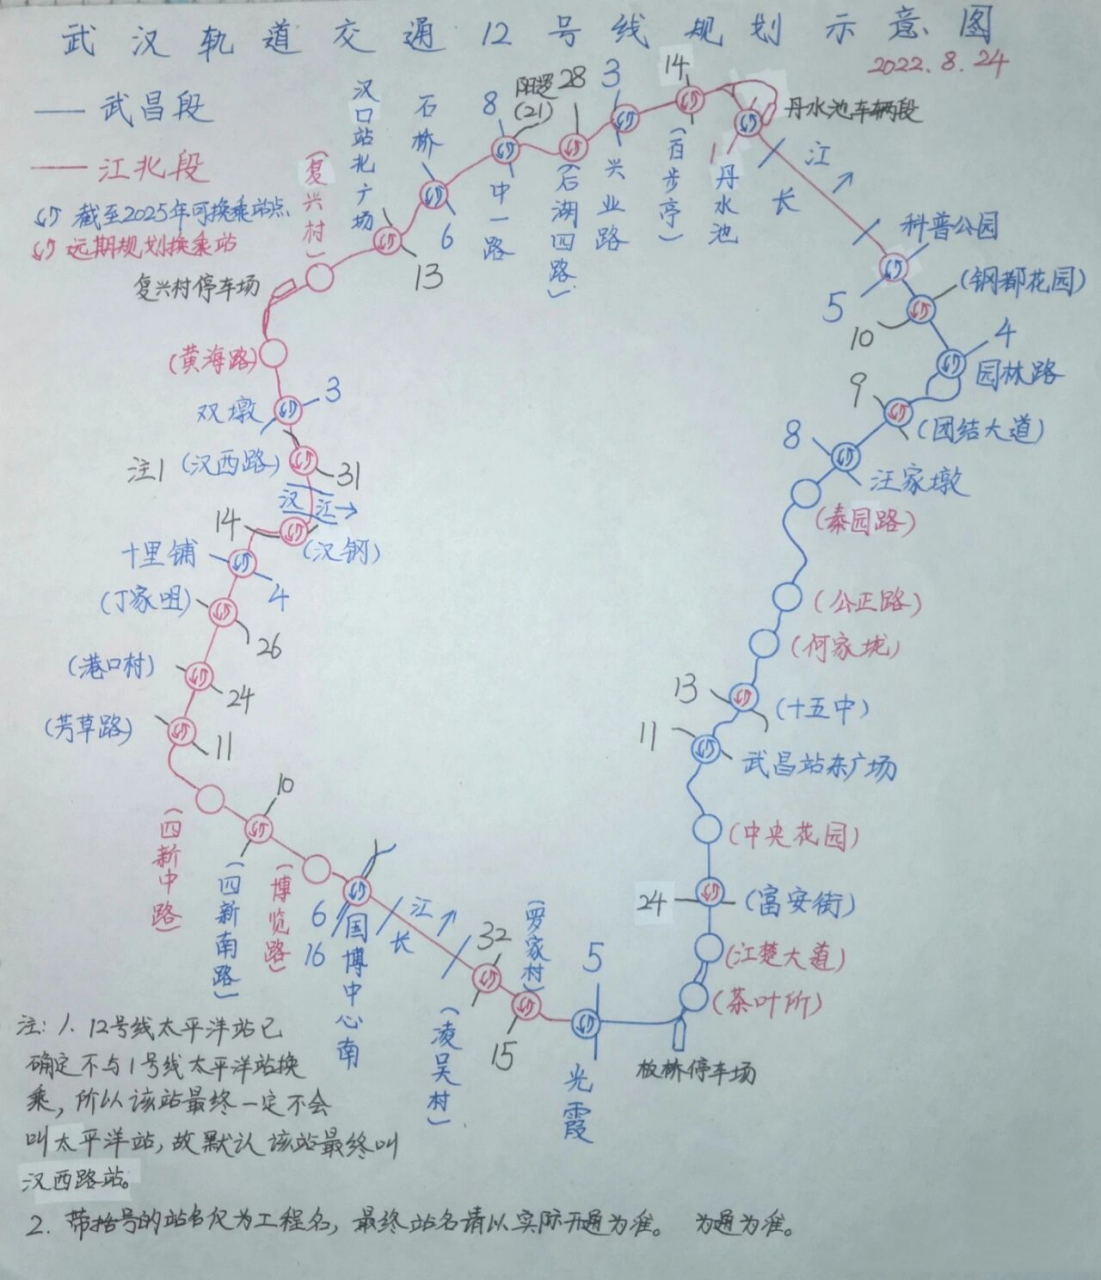 武汉轨道交通12号线规划示意图
2022.8.24
武昌段
江北段
截至2025年可换乘站点
远期规划换乘站
(复兴村)
汉口站北广场
13
石桥
6
8
阳逻
(21)
中一路
28
(石湖四路)
3
兴业路
14
(百步亭)
1
丹水池
丹水池车辆段
长江
科普公园
5
(钢都花园)
10
4
园林路
9
(团结大道)
8
汪家墩
(秦园路)
(公正路)
(何家垅)
13
(十五中)
11
武昌站东广场
(中央花园)
24
(富安街)
(江楚大道)
(茶叶所)
板桥停车场
5
光霞
(罗家村)
15
32
(凌吴村)
长江
6
16
国博中心南
(博览路)
10
(四新南路)
(四新中路)
(芳草路)
11
(港口村)
24
(丁家咀)
26
十里铺
4
14
(汉钢)
汉江
注1
(汉西路)
31
双墩
3
(黄海路)
复兴村停车场
注:1.12号线太平洋站已
确定不与1号线太平洋站换
乘,所以该站最终一定不会
叫太平洋站,故默认该站最终叫
汉西路站。
2.带括号的站名仅为工程名,最终站名请以实际开通为准。 为通为准。